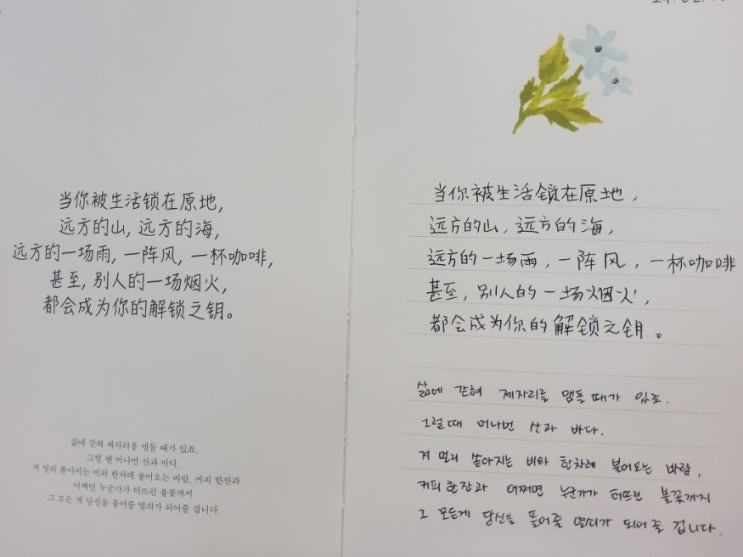 当你被生活锁在原地,
远方的山, 远方的海,
远方的一场雨, 一阵风, 一杯咖啡,
甚至, 别人的一场烟火,
都会成为你的解锁之钥。
삶에 갇혀 제자리를 맴돌 때가 있죠.
그럴 땐 머나먼 산과 바다.
저 멀리 쏟아지는 비와 한차례 불어오는 바람, 커피 한잔과
어쩌면 누군가가 터뜨린 불꽃까지
그 모든 게 당신을 풀어줄 열쇠가 되어줄 겁니다.
当你被生活锁在原地,
远方的山, 远方的海,
远方的一场雨, 一阵风, 一杯咖啡
甚至, 别人的一场烟火,
都会成为你的解锁之钥。
삶에 갇혀 제자리를 맴돌 때가 있죠.
그럴때 머나먼 산과 바다.
저 멀리 쏟아지는 비와 한차례 불어오는 바람,
커피 한잔과 어쩌면 누군가가 터뜨린 불꽃까지
그 모든게 당신을 풀어줄 열쇠가 되어줄 겁니다.